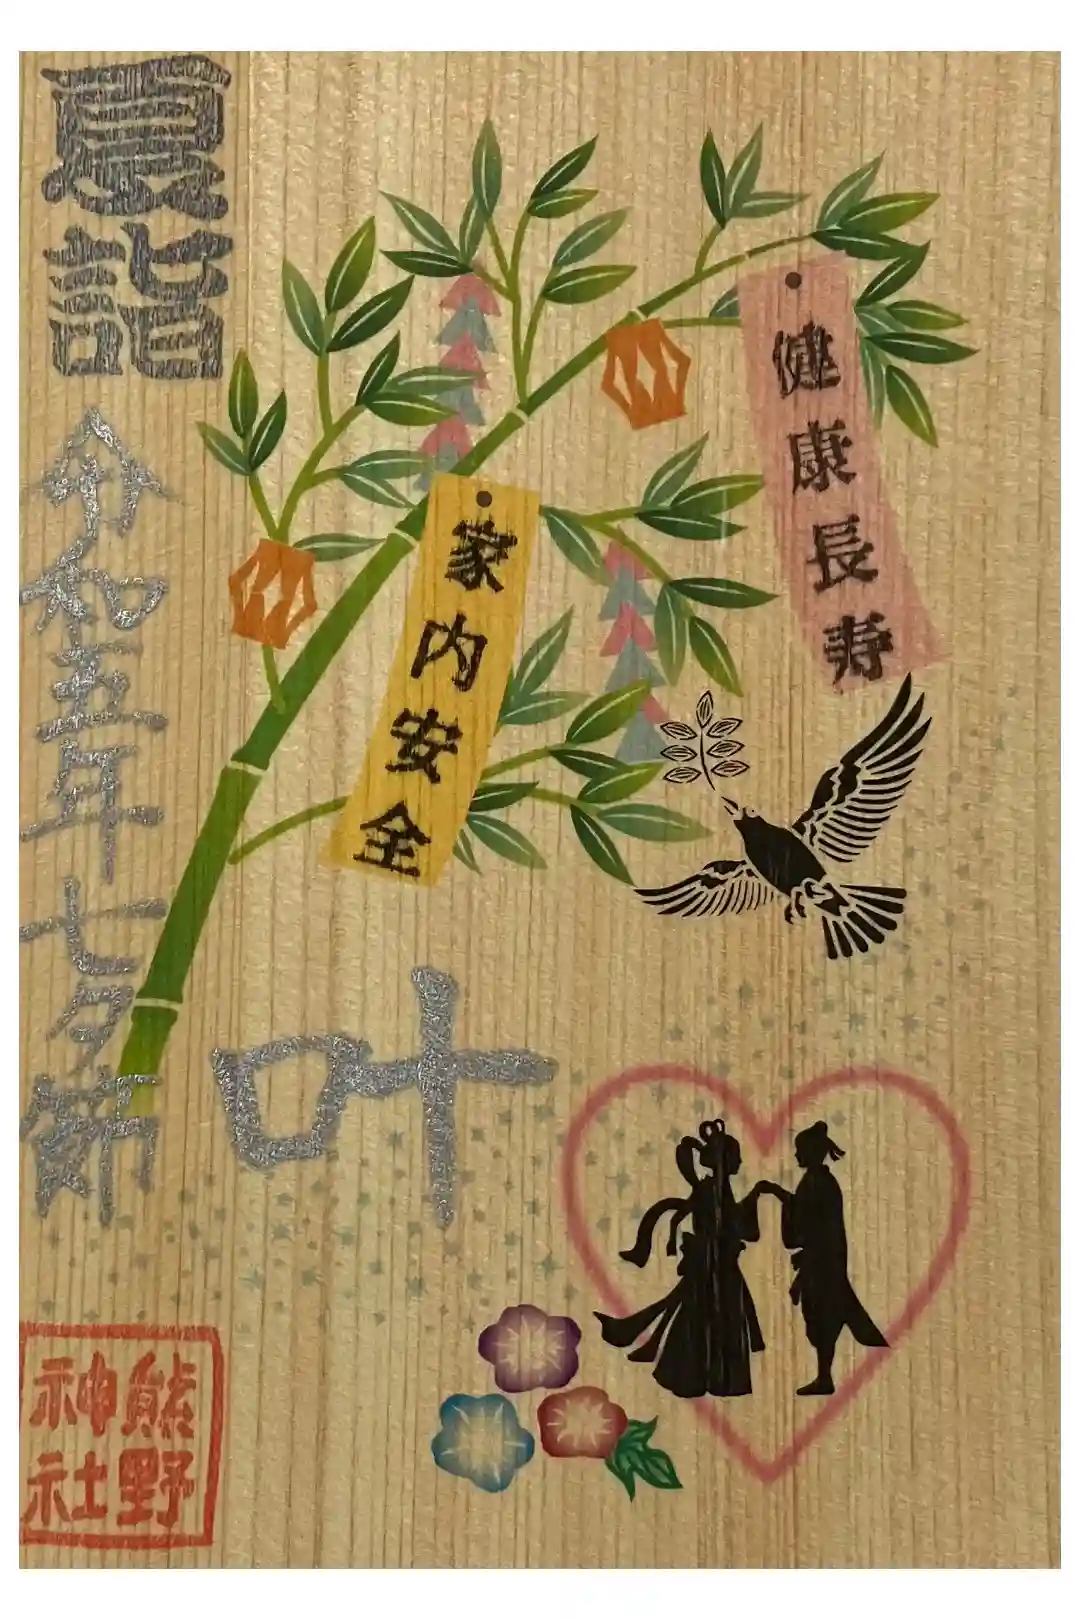 夏詣
令和五年七夕節
叶
健康長寿
家内安全
熊野
神社